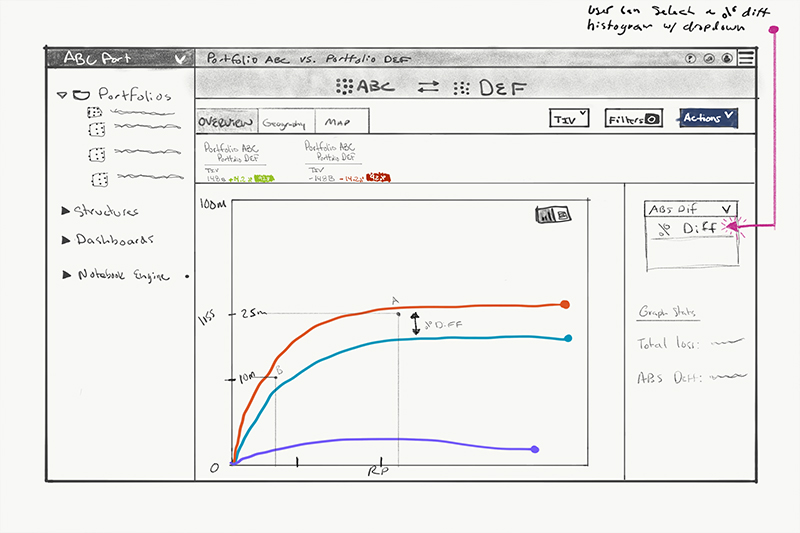 User can select a % diff
histogram w/ dropdown
ABC Port
Portfolio ABC vs. Portfolio DEF
?
ABC
DEF
Portfolios
Structures
Dashboards
Notebook Engine
OVERVIEW
Geography
MAP
TIV
Filters
Actions
Portfolio ABC
Portfolio DEF
TIV
148B +14.2%
Portfolio ABC
Portfolio DEF
TIV
-148B -14.2%
100m
loss
25m
10m
0
A
% DIFF
B
RP
ABS Dif
% Diff
Graph Stats
Total loss: